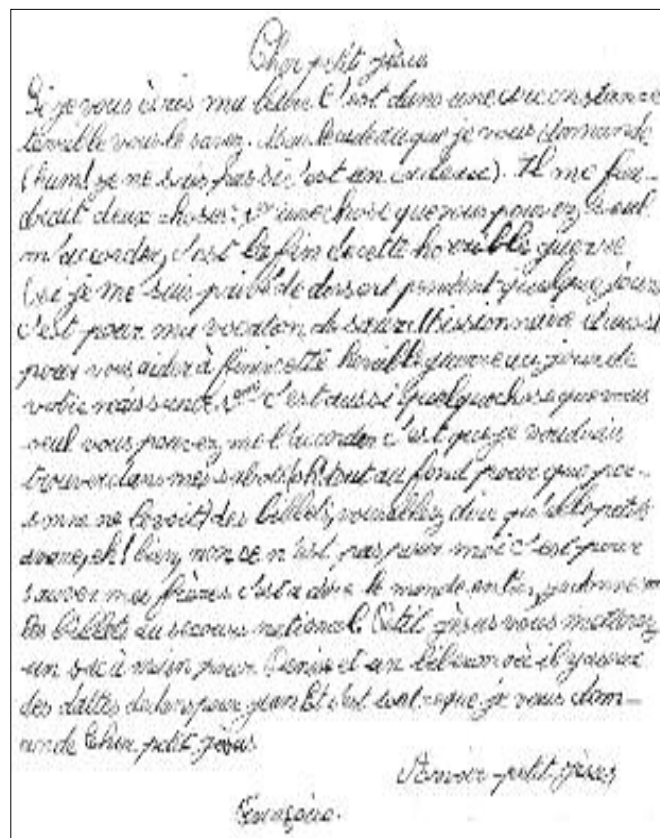 Cher petit Jésus
Si je vous écris ma lettre c'est dans une circonstance
terrible vous le savez. Mais le cadeau que je vous demande
(hum! je ne sais pas si c'est un cadeau). Il me fau-
drait deux choses: 1º une chose que vous pouvez seul
m'accorder, c'est la fin de cette horrible guerre
(si je me suis privé de dessert pendent quelque jours
c'est pour ma vocation de sœur Missionnaire et aussi
pour vous aider à finir cette horrible guerre au jour de
votre naissance 2º c'est aussi quelque chose que vous
seul vous pouvez me l'accorder c'est que je voudrais
trouver dans mes sabots (tout au fond pour que per-
sonne ne le voit) des billets, vous allez dire qu'elle petite
avare, eh! bien, non ce n'est pas pour moi c'est pour
sauver mes frères c'est a dire le monde entier, je donne
les billets au secours national. Petit Jésus vous metterez
un sac à main pour Denise et un où il y aura
des dattes dedans pour Jean Et c'est tout ce que je vous dem-
ande Cher petit Jésus
Aurvoir petit Jésus
Françoise.